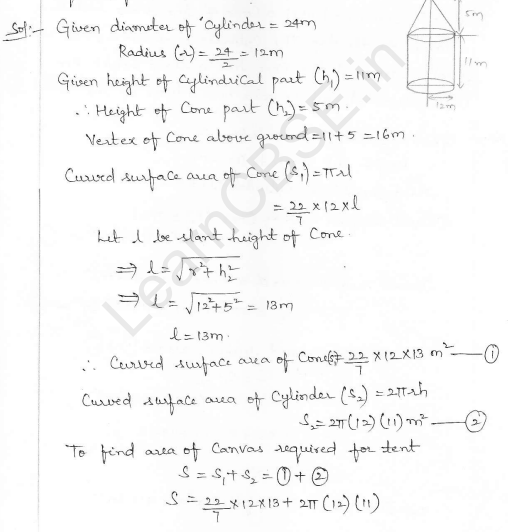 Sol:- Given diameter of Cylinder = 24m
Radius (r) = 24/2 = 12m
5m
Given height of Cylindrical part (h₁) = 11m
11m
∴ Height of Cone part (h₂) = 5m.
12m
Vertex of Cone above ground = 11+5 = 16m.
Curved surface area of Cone (S₁) = πrl
= 22/7 × 12 × l
Let l be slant height of Cone.
⇒ l = √(r² + h₂²)
⇒ l = √(12² + 5²) = 13m
l = 13m.
∴ Curved surface area of Cone(S₁) = 22/7 × 12 × 13 m² — ①
Curved surface area of Cylinder (S₂) = 2πrh
S₂ = 2π(12)(11) m² — ②
To find area of Canvas required for tent
S = S₁ + S₂ = ① + ②
S = 22/7 × 12 × 13 + 2π(12)(11)
LearnCBSE.in